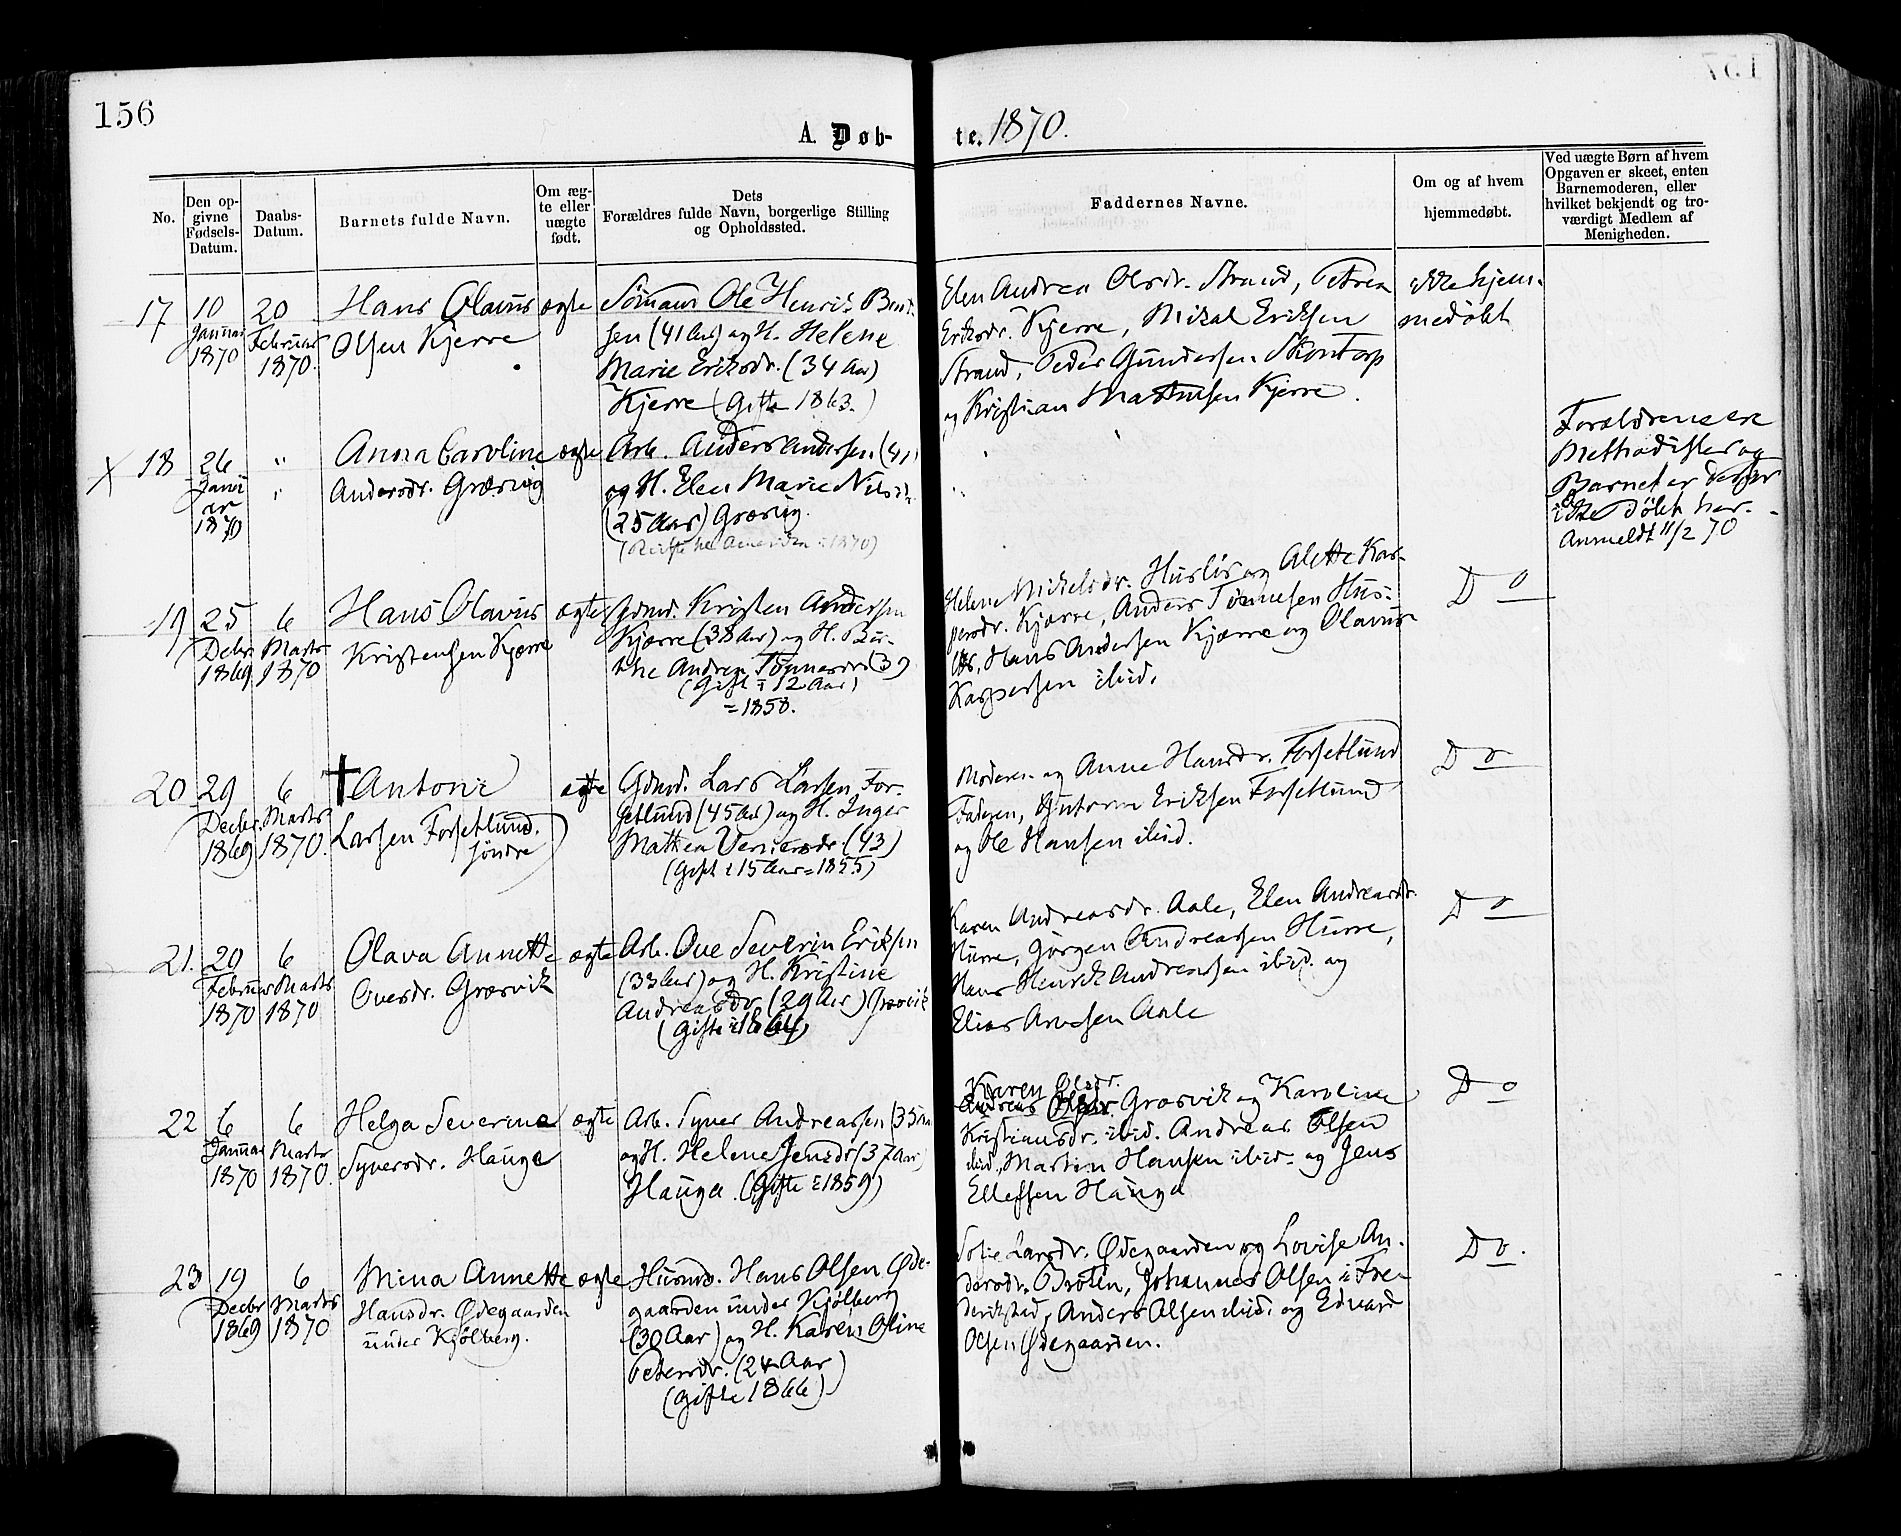 156
A. Døb-
te. 1870.
No.
Den op-
givne
Fødsels-
Datum.
Daabs-
Datum.
Barnets fulde Navn.
Om æg-
te eller
uægte
født.
Dets
Forældres fulde Navn, borgerlige Stilling
og Opholdssted.
Faddernes Navne.
Om og af hvem
hjemmedøbt.
Ved uægte Børn af hvem
Opgaven er skeet, enten
Barnemoderen, eller
hvilket bekjendt og tro-
værdigt Medlem af
Menigheden.
17
10
Januar
1870
20
Februar
1870.
Hans Olavus
Olsen Kjerre
ægte
Sømand Ole Henrik Bent-
sen (41 Aar) og H. Helene
Marie Eriksdr. (34 Aar)
Kjerre (Gifte 1863.)
Elen Andrea Olsdr. Strand, Petrea
Eriksdr. Kjerre, Mikal Eriksen
Strand, Peder Gundersen Skontorp
og Kristian Mathisen Kjerre.
ikke hjem-
medøbt
X 18
26
Janu
ar
1870
"
"
Anna Caroline
Andersdr. Græsvig
ægte
Arb. Anders Andersen (41)
og H. Elen Marie Nilsdr.
(25 Aar) Græsvig.
(Reiste til Amerika i 1870)
"
Forældrene ere
Methodister og
Barnet er derfor
ikke døbt her.
Anmeldt 11/2 70
19
25
Decbr
1869
6
Marts
1870
Hans Olavus
Kristensen Kjærre
ægte
Gdmd. Kristen Andersen
Kjærre (38 Aar) og H. Ber-
the Andrea Tønnesdr (39
(Gift i 12 Aar)
= 1858.
Helene Nickelsdr. Husløs og Alette Kas-
persdr. Kjærre, Anders Tønnesen Hus-
løs, Hans Andersen Kjærre og Olavus
Kaspersen ibid.
Do
20
29
Decbr.
1869
6
Marts
1870.
† Antoni
Larsen Forsetlund.
søndre
ægte
Gdmd. Lars Larsen For-
setlund (45 Aar) og H. Inger
Mathea Vernersdr (43)
(Gift i 15 Aar = 1855)
Moderen og Anne Hansdr. Forsetlund
Faderen, Guttorm Eriksen Forsetlund
og Ole Hansen ibid.
Do
21.
20
Februar
1870
6
Marts
1870
Olava Annette
Ovesdr. Græsvik
ægte
Arb. Ove Severin Eriksen
(33 Aar) og H. Kristine
Andreasdr (29 Aar) Græsvik
(Gifte i 1864)
Karen Andreasdr. Aale, Elen Andreasdr.
Hurre, Jørgen Andreassen Hurre,
Hans Henrik Andreassen ibid. og
Elias Arnesen Aale
Do
22
6
Januar
1870
6
Marts
1870.
Helga Severine
Syversdr. Hauge
ægte
Arb. Syver Andreassen (35 Aar
og H. Helene Jensdr (37 Aar)
Hauge. (Gifte i 1859)
Karen Olsdr.
Græsvik og Karoline
Kristiansdr. ibid. Andreas Olsen
ibid., Martin Hansen ibid. og Jens
Ellefsen Hauge
Do
23
19
Decbr
1869
6
Marts
1870
Mina Annette
Hansdr. Ødegaarden
under Kjølberg.
ægte
Husmd. Hans Olsen Øde-
gaarden under Kjølberg
(30 Aar) og H. Karen Oline
Petersdr. (24 Aar)
(Gifte 1866)
Sofie Larsdr. Ødegaarden og Lovise An-
dersdr. Broten, Johannes Olsen i Fre-
derikstad, Anders Olsen ibid. og Edvard
Olsen Ødegaarden.
Do.